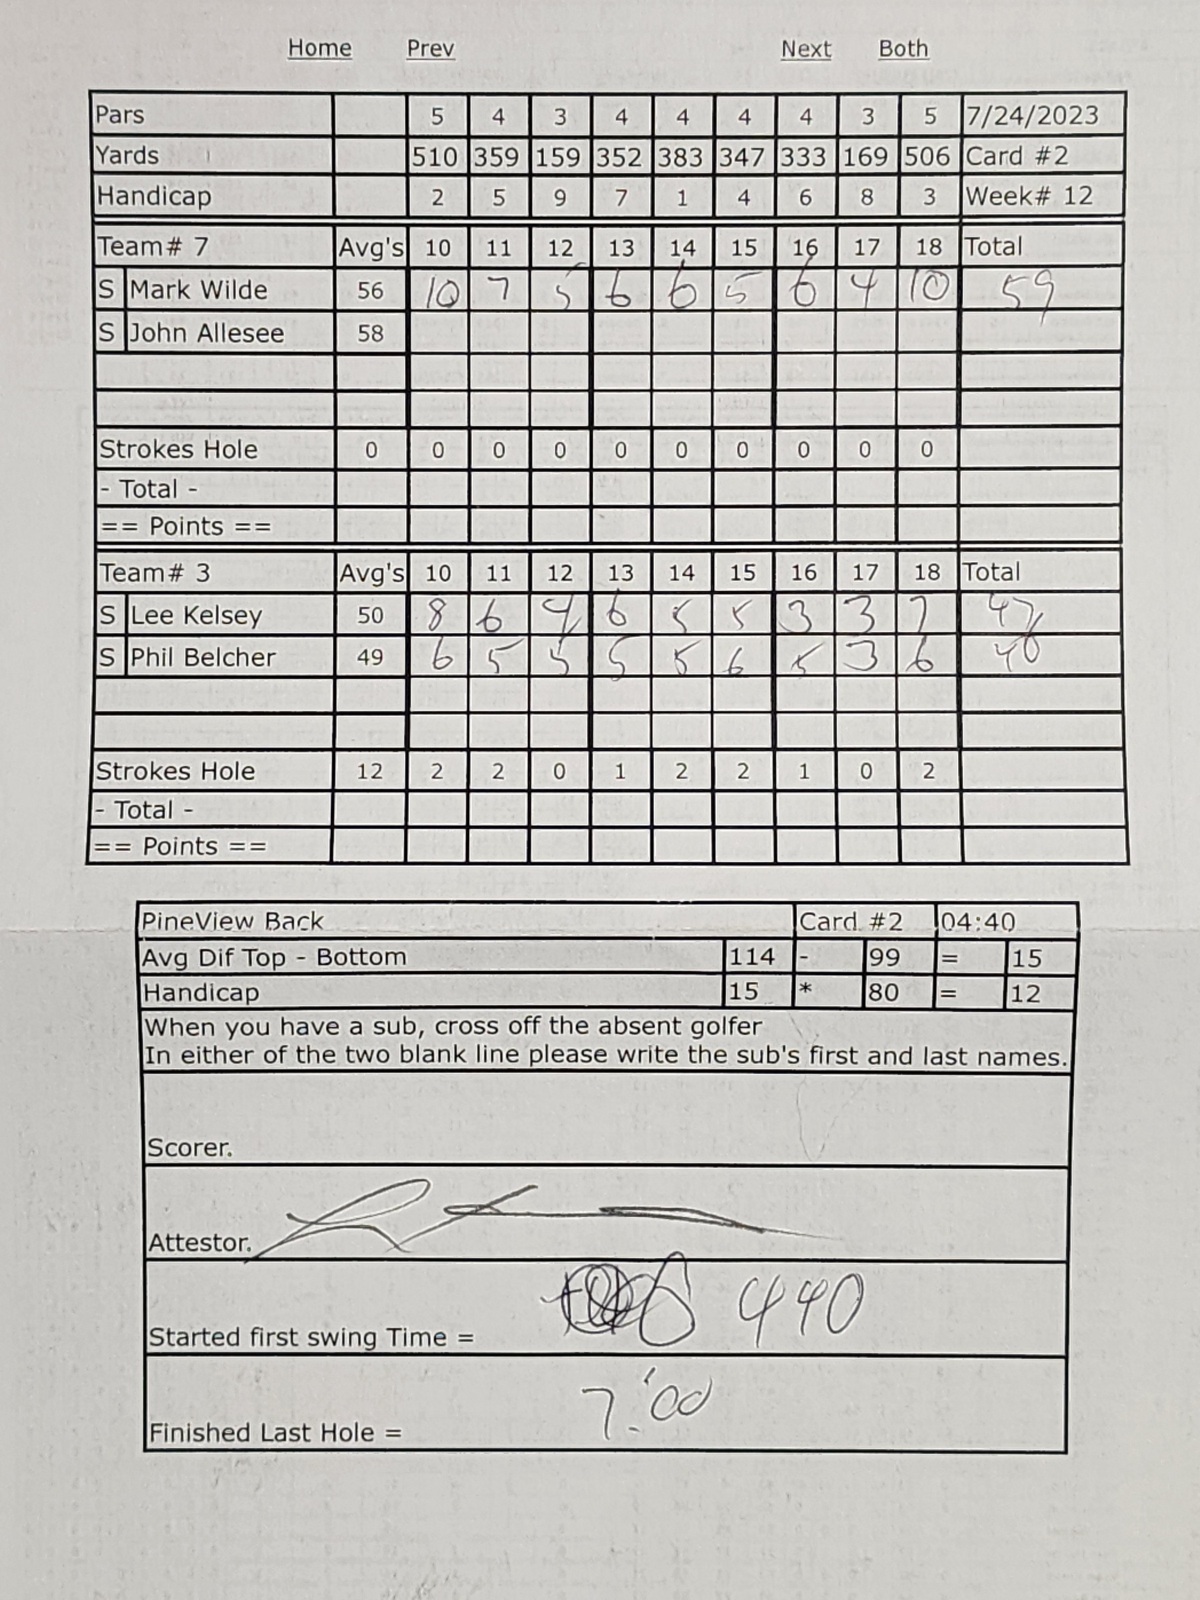 Home Prev Next Both
Pars 5 4 3 4 4 4 4 3 5 7/24/2023
Yards 510 359 159 352 383 347 333 169 506 Card #2
Handicap 2 5 9 7 1 4 6 8 3 Week# 12
Team# 7 Avg's 10 11 12 13 14 15 16 17 18 Total
S Mark Wilde 56 10 7 5 6 6 5 6 4 10 59
S John Allesee 58
Strokes Hole 0 0 0 0 0 0 0 0 0 0
- Total -
== Points ==
Team# 3 Avg's 10 11 12 13 14 15 16 17 18 Total
S Lee Kelsey 50 8 6 4 6 5 5 3 3 7 47
S Phil Belcher 49 6 5 5 5 5 6 5 3 6
Strokes Hole 12 2 2 0 1 2 2 1 0 2
- Total -
== Points ==
PineView Back Card #2 04:40
Avg Dif Top - Bottom 114 - 99 = 15
Handicap 15 * 80 = 12
When you have a sub, cross off the absent golfer
In either of the two blank line please write the sub's first and last names.
Scorer.
Attestor.
Started first swing Time = 440
Finished Last Hole = 7:00